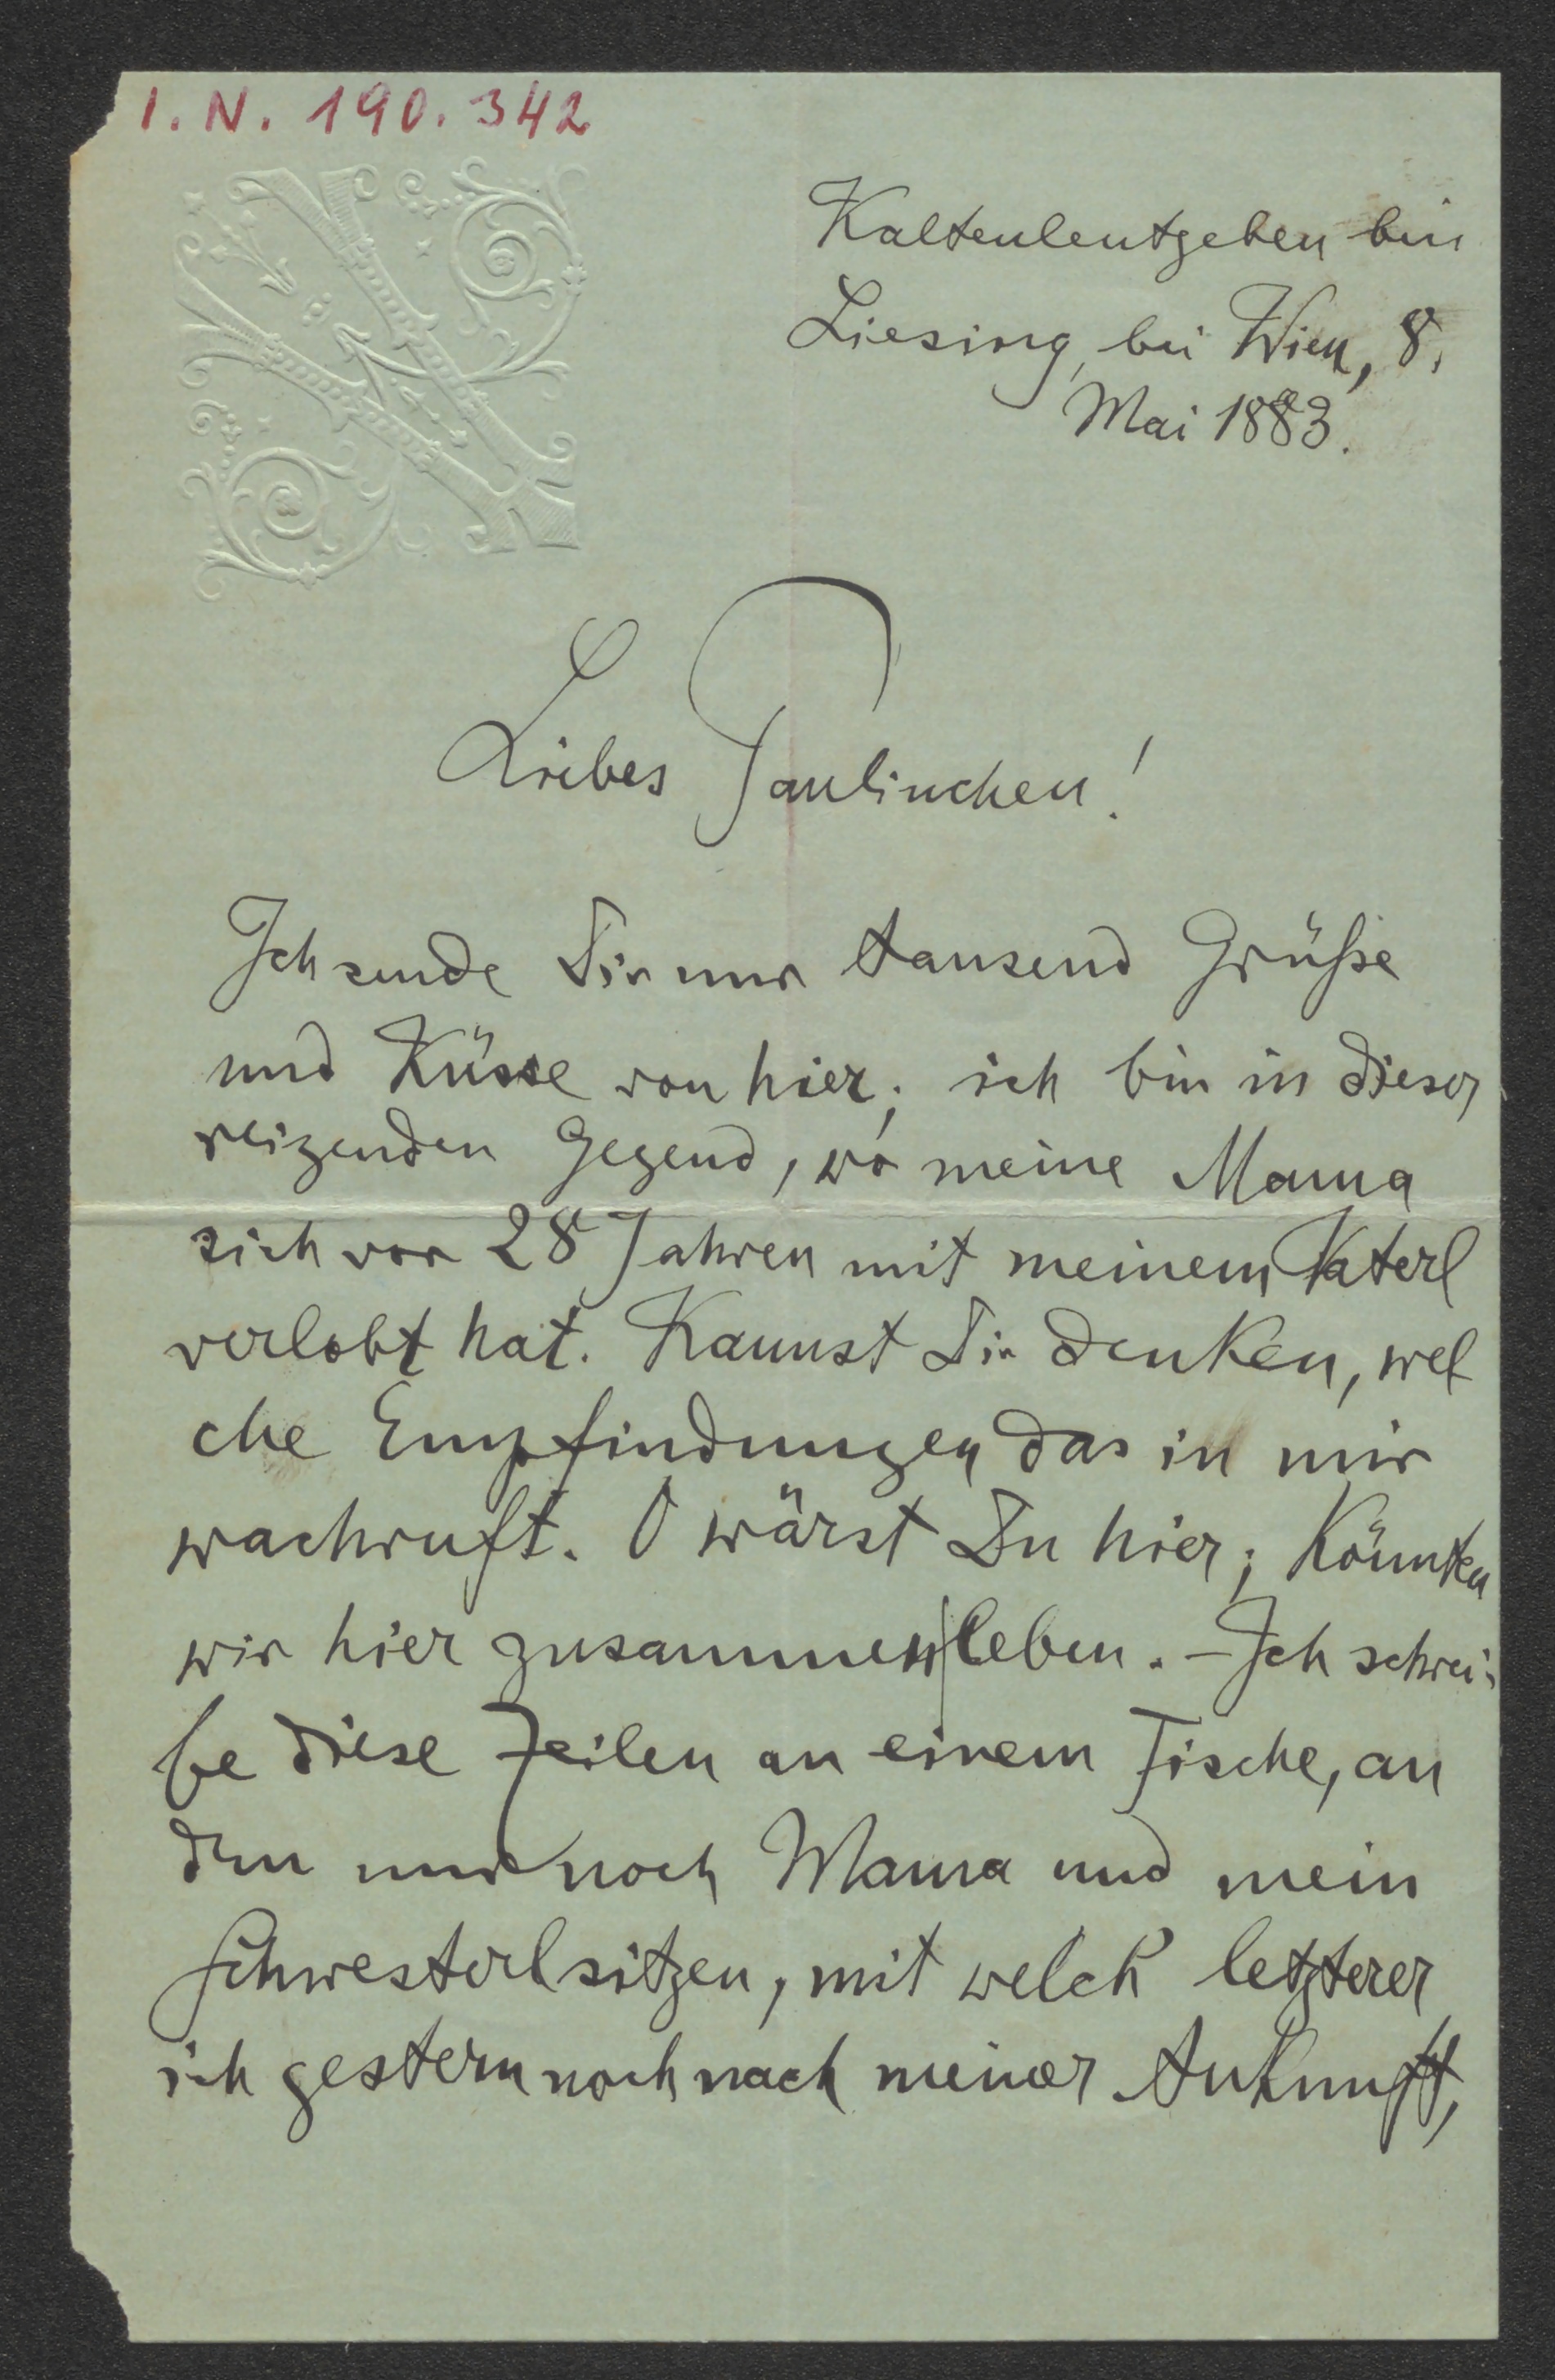 I. N. 190.342
Kaltenleutgeben bei
Liesing, bei Wien, 8.
Mai 1883.
Liebes Paulinchen!
Ich sende Dir nur tausend Grüße
und Küsse von hier; ich bin in dieser
reizenden Gegend, wo meine Mama
sich vor 28 Jahren mit meinem Vaterl
verlobt hat. Kannst Dir denken, wel
che Empfindungen das in mir
wachruft. O wärst Du hier; könnten
wir hier zusammen|leben. – Ich schrei-
be diese Zeilen an einem Tische, an
dem nur noch Mama und mein
Schwesterl sitzen, mit welch letzterer
ich gestern noch nach meiner Ankunft,